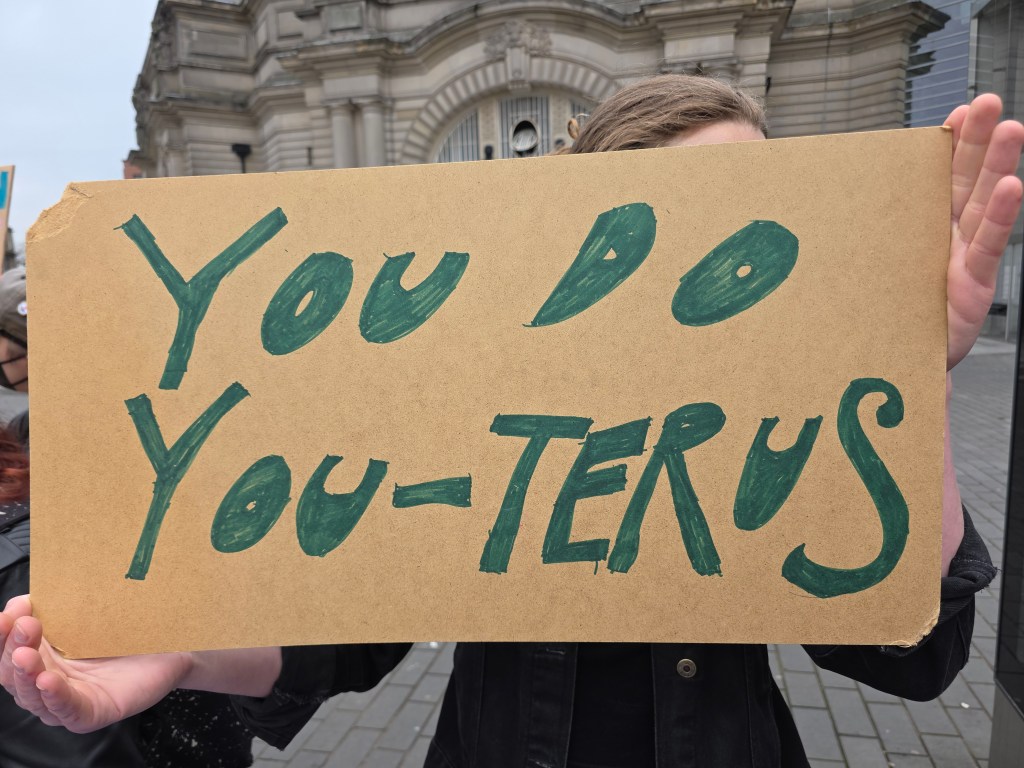 YOU DO
YOU-TERUS